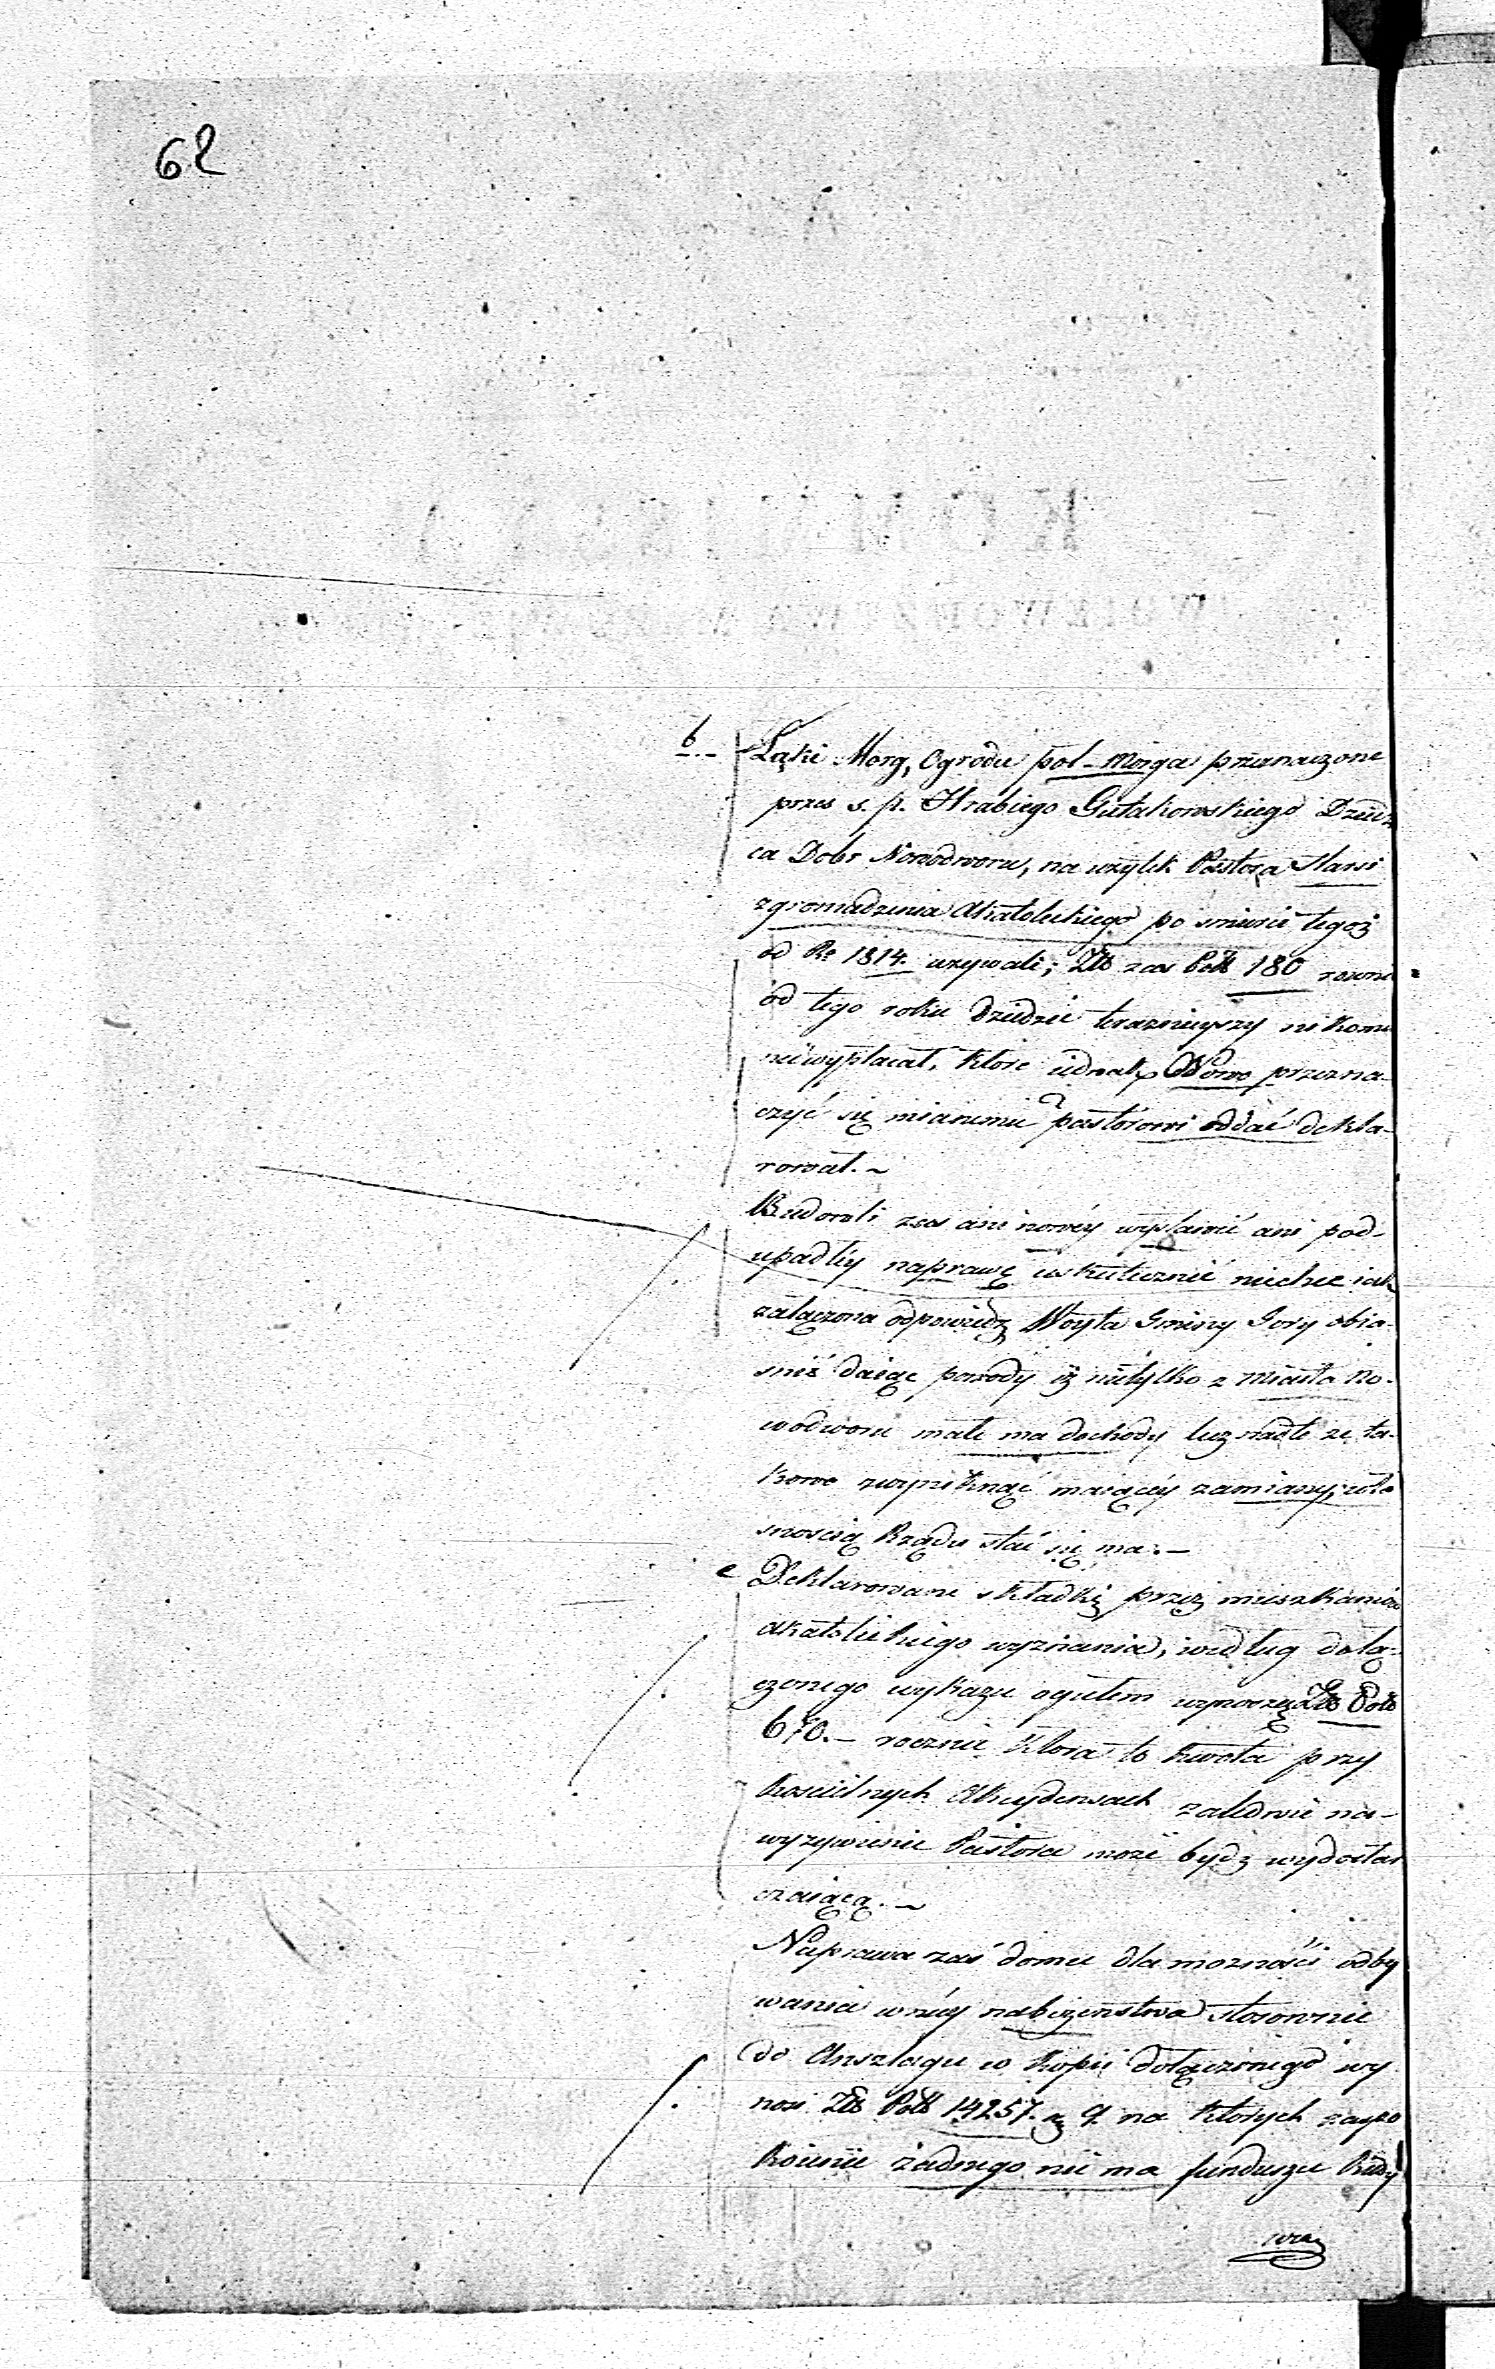 62
b Łąki Morg, Ogrodu pol-Morga przeznaczone
przes s. p. Hrabiego Gutakowskiego Dziedz
ca Dobr Nowodworu, na użytek Pastora Starsi
zgromadzenia Akatolickiego po smierci tegoż
od Rº 1814. używali; Złł zas Poll 180 rowni=
od tego roku dziedzic terazniejszy nikomu
niewypłacał, ktore iednak Nowo przezna-
czyć się mianemu pastorowi oddać dekla-
rował. ~
Budowli zas ani nowéy wystawić ani pod-
upadłéy naprawę uskutecznić niechce iak
załączona odpowiedz Woyta Gminy Gory obia-
snia daiąc powody iż nietylko z Miasta No-
wodworu małe ma dochody lecz nadto ze ta-
kowe wyniknąć maiącéy zamiany, wła
snoscią Rządu stać się ma. -
c Deklarowane składki przez mieszkańców
akatolickiego wyznania, według dołą-
czonego wykazu ogułem wynoszą Złł Poll
670. - rocznie ktora to kwota przy
Koscielnych Akcydensach zaledwie na-
wyzywienie Pastora może bydz wydostar
czaiącą. ~
Naprawa zaś domu dla mozności odby
wania w nićy nabożenstwa stosownie
do Anszlagu w Kopii dołączonego wy
nosi Złł Poll 14257. g 9 na ktorych zaspo
koienie żadnego nie ma funduszu